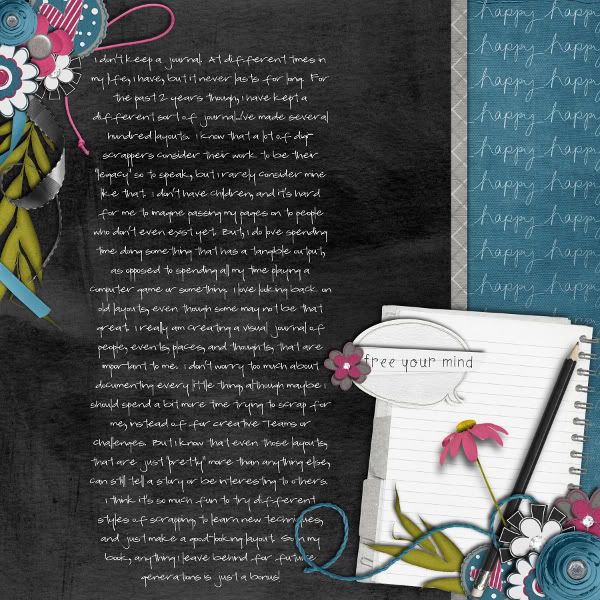 I don't keep a journal. At different times in
my life, I have, but it never lasts for long. For
the past 2 years though, I have kept a
different sort of journal. I've made several
hundred layouts. I know that a lot of digi
scrappers consider their work to be their
"legacy" so to speak, but I rarely consider mine
like that. I don't have children, and it's hard
for me to imagine passing my pages on to people
who don't even exist yet. But, I do love spending
time doing something that has a tangible output,
as opposed to spending all my time playing a
computer game or something. I love looking back on
old layouts, even though some may not be that
great. I really am creating a visual journal of
people, events, places, and thoughts, that are
important to me. I don't worry too much about
documenting every little thing, although maybe I
should spend a bit more time trying to scrap for
me, instead of for Creative Teams or
challenges. But I know that even those layouts,
that are just "pretty" more than anything else,
can still tell a story or be interesting to others.
I think it's so much fun to try different
styles of scrapping, to learn new techniques,
and just make a good-looking layout. So in my
book, anything I leave behind for future
generations is just a bonus!
happy happy
happy happy
happy happy
happy happy
happy happy
happy happy
happy happy
happy happy
happy happy
happy happy
free your mind